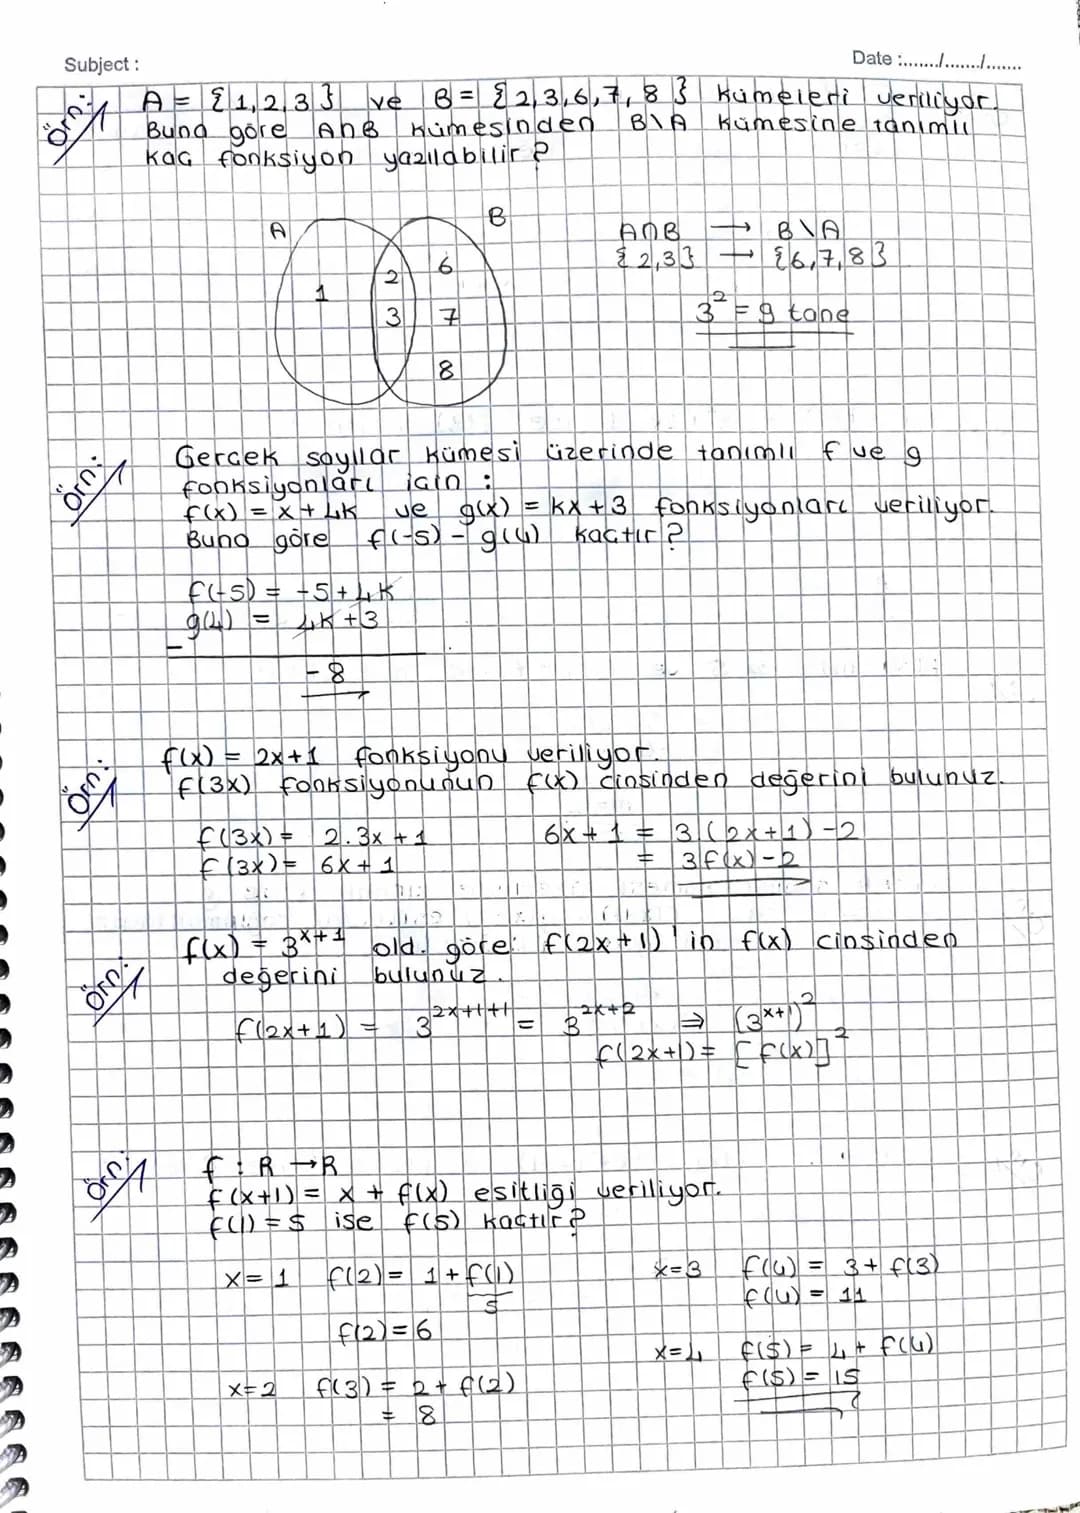 Subject :
Date :......./......./.......
Örn: A = {1,2,3} ve B = {2,3,6,7,8} kümeleri veriliyor.
Buna göre A∩B kümesinden B\A kümesine tanımlı
kaç fonksiyon yazılabilir?
A
B
1
2
3
6
7
8
A∩B → B\A
{2,3} → {6,7,8}
3² = 9 tane
Örn: Gerçek sayılar kümesi üzerinde tanımlı f ve g
fonksiyonları için :
f(x) = x+4k ve g(x) = kx+3 fonksiyonları veriliyor.
Buna göre f(-5) - g(4) kaçtır?
f(-5) = -5+4k
g(4) = 4k+3
-
-8
Örn: f(x) = 2x+1 fonksiyonu veriliyor.
f(3x) fonksiyonunun f(x) cinsinden değerini bulunuz.
f(3x) = 2.3x+1
f(3x) = 6x+1
6x+1 = 3(2x+1)-2
= 3f(x)-2
Örn: f(x) = 3^{x+1} old. göre f(2x+1)'in f(x) cinsinden
değerini bulunuz.
f(2x+1) = 3^{2x+1+1} = 3^{2x+2} ⇒ (3^{x+1})²
f(2x+1) = [f(x)]²
Örn: f : R → R
f(x+1) = x + f(x) esitliği veriliyor.
f(1) = 5 ise f(5) kaçtır?
x=1 f(2) = 1+f(1)
5
f(2)=6
x=2 f(3) = 2+f(2)
= 8
x=3 f(4) = 3+f(3)
f(4) = 11
x=4 f(5) = 4+f(4)
f(5) = 15